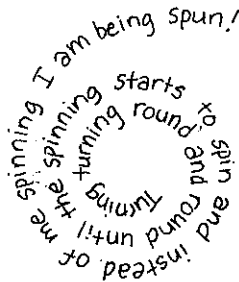 Turning turning round and round until the spinning starts to spin and instead of me spinning I am being spun!